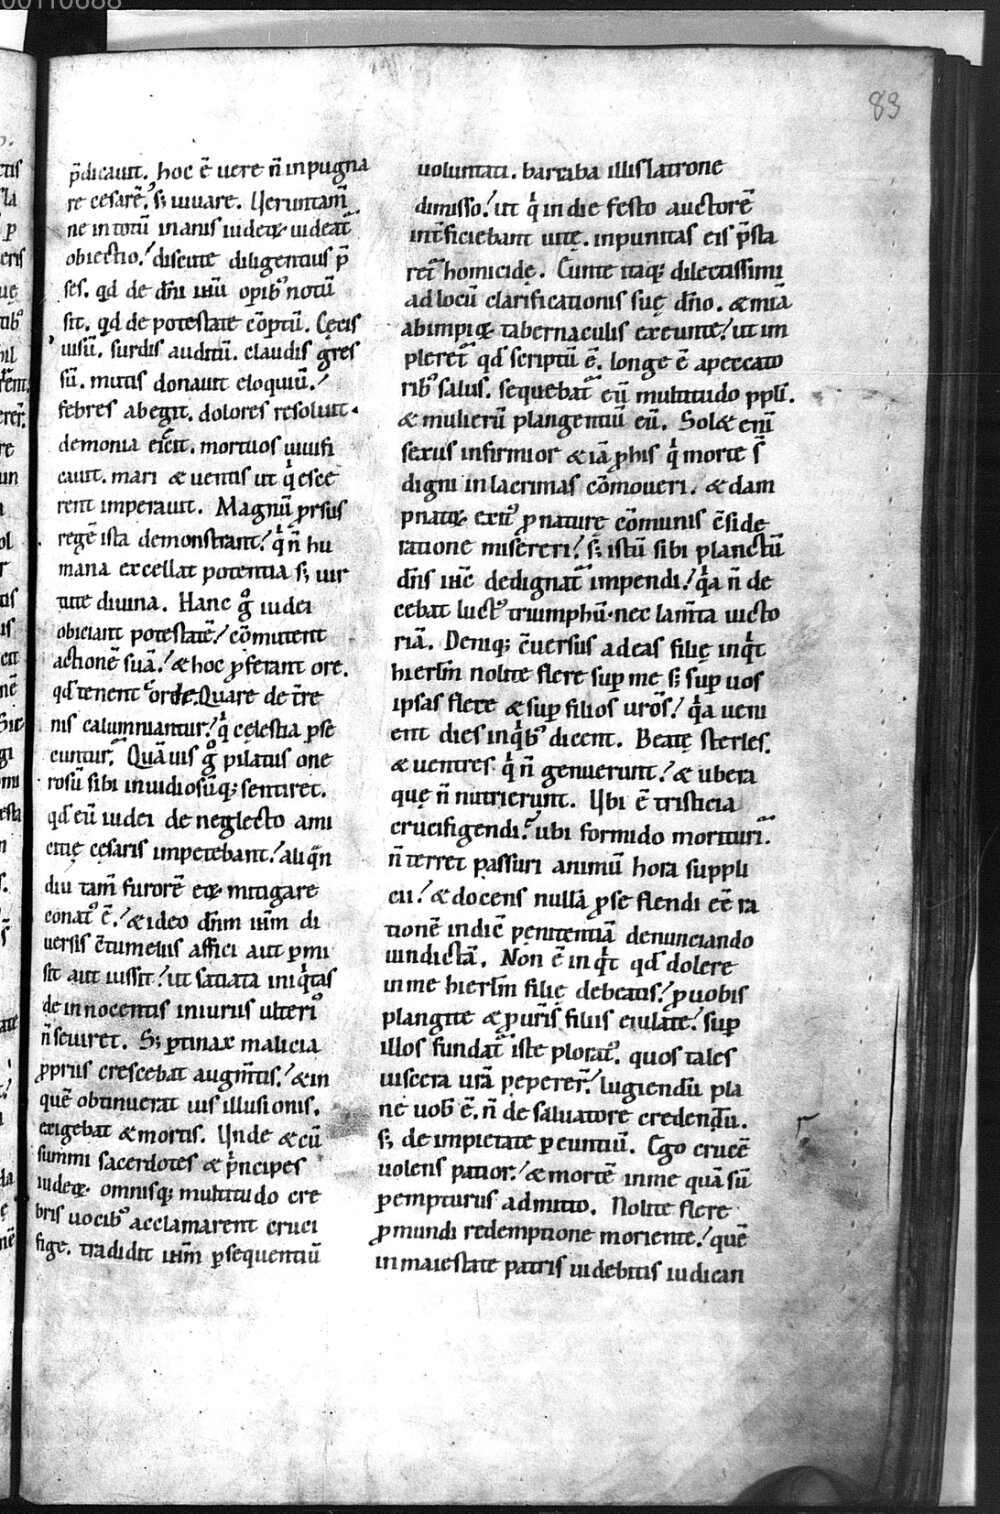 83
p̄dicauit. hoc ē uere n̄ inpugna
re cesarē. s; iuuare. Ueruntam̄
ne in totū inanis iudeoꝝ uideat᷑
obiectio. discute diligentius p̄
ses. qd de dn̄i ihū opib᷒ notū
sit. qd de potestate cōptū. Cęcis
uisū. surdis auditū. claudis g̈res
sū. mutis donauit eloquiū.
febres abegit. dolores resoluit.
demonia eiecit. mortuos uiuifi
cauit. mari & uentis ut qͥesce
rent imperauit. Magnū ꝓrsus
regē ista demonstrant. qͥ n̄ hu
mana excellat potentia s; uir
tute diuina. Hanc gͦ iudei
obiciant potestatē. cōmutent
actionē suā. & hoc ꝓferant ore.
qd tenent corde. Quare de t̄re
nis calumniantur. qͥ cęlestia ꝑse
cuntur. Quāuis gͦ pilatus one
rosū sibi inuidiosūq; sentiret.
qd eū iudei de neglecto ami
citię cęsaris impetebant. aliqͣn
diu tam̄ furorē eoꝝ mitigare
conat᷒ ē. & ideo dn̄m ihm̄ di
uersis c̄tumeliis affici aut ꝑmi
sit aut iussit. ut satiata iniqͥtas
de innocentis iniuriis ulteri᷒
n̄ seuiret. S; ꝑtinax malicia
ꝓpriis crescebat augm̄tis. & in
quē obtinuerat uis illusionis.
exigebat & mortis. Unde & cū
summi sacerdotes & pͥncipes
iudeoꝝ omnisq; multitudo cre
bris uocib᷒ acclamarent cruci
fige. tradidit ihm̄ ꝑsequentiū
uoluntati. barraba illis latrone
dimisso. ut qͥ in die festo auctorē
int̄ficiebant uitę. inpunitas eis p̄sta
ret᷑ homicidę. Eunte itaq; dilectissimi
ad locū clarificationis suę dn̄o. & m̄ia
ab impioꝝ tabernaculis exeunte. ut im
pleret᷑ qd scriptū ē. longe ē a peccato
rib᷒ salus. sequebat᷑ eū multitudo ppl̄i.
& mulierū plangentiū eū. Solet eni
sexus infirmior & iā ꝓ his qͥ morte s̄
digni in lacrimas cōmoueri. & dam
pnatoꝝ exit᷒ ꝓ naturę cōmunis c̄side
ratione misereri. s; istū sibi planctū
dn̄s ihc̄ dedignat᷑ impendi. qͥa n̄ de
cebat luct᷒ triumphū. nec lam̄ta uicto
riā. Deniq; c̄uersus ad eas filię inqͥt
hierlm̄ nolite flere sup me s; sup uos
ipsas flete & sup filios uros̄. qͥa ueni
ent dies in qͥb᷒ dicent. Beatę steriles.
& uentres qͥ n̄ genuerunt. & ubera
quę n̄ nutrierunt. Ubi ē tristicia
crucifigendi. ubi formido morituri.
n̄ terret passuri animū hora suppli
cii. & docens nullā ꝓ se flendi ee᷑̄ ra
tionē indic̄ penitentiā denunciando
uindictā. Non ē inqͥt qd dolere
in me hierlm̄ filię debeatis. ꝓ uobis
plangite & ꝓ ur̄is filiis eiulate. sup
illos fundat᷑ iste plorat᷒. quos tales
uiscera ur̄a pepereر̄. lugiendū pla
ne uob̄ ē. n̄ de saluatore credentiū.
s; de impietate pereuntiū. Ego crucē
uolens patior. & mortē in me quā sū
ꝑempturus admitto. Nolite flere
ꝓ mundi redemptione moriente. quē
in maiestate patris uidebitis iudican